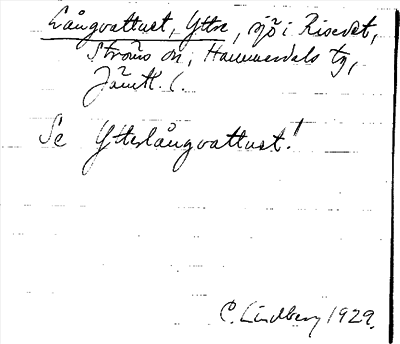 Långvattnet, Yttre, sjö i Risedet,
Ströms sn, Hammerdals tg,
Jämtl. l.
Se Ytterlångvattnet!
C. Lindberg 1929.